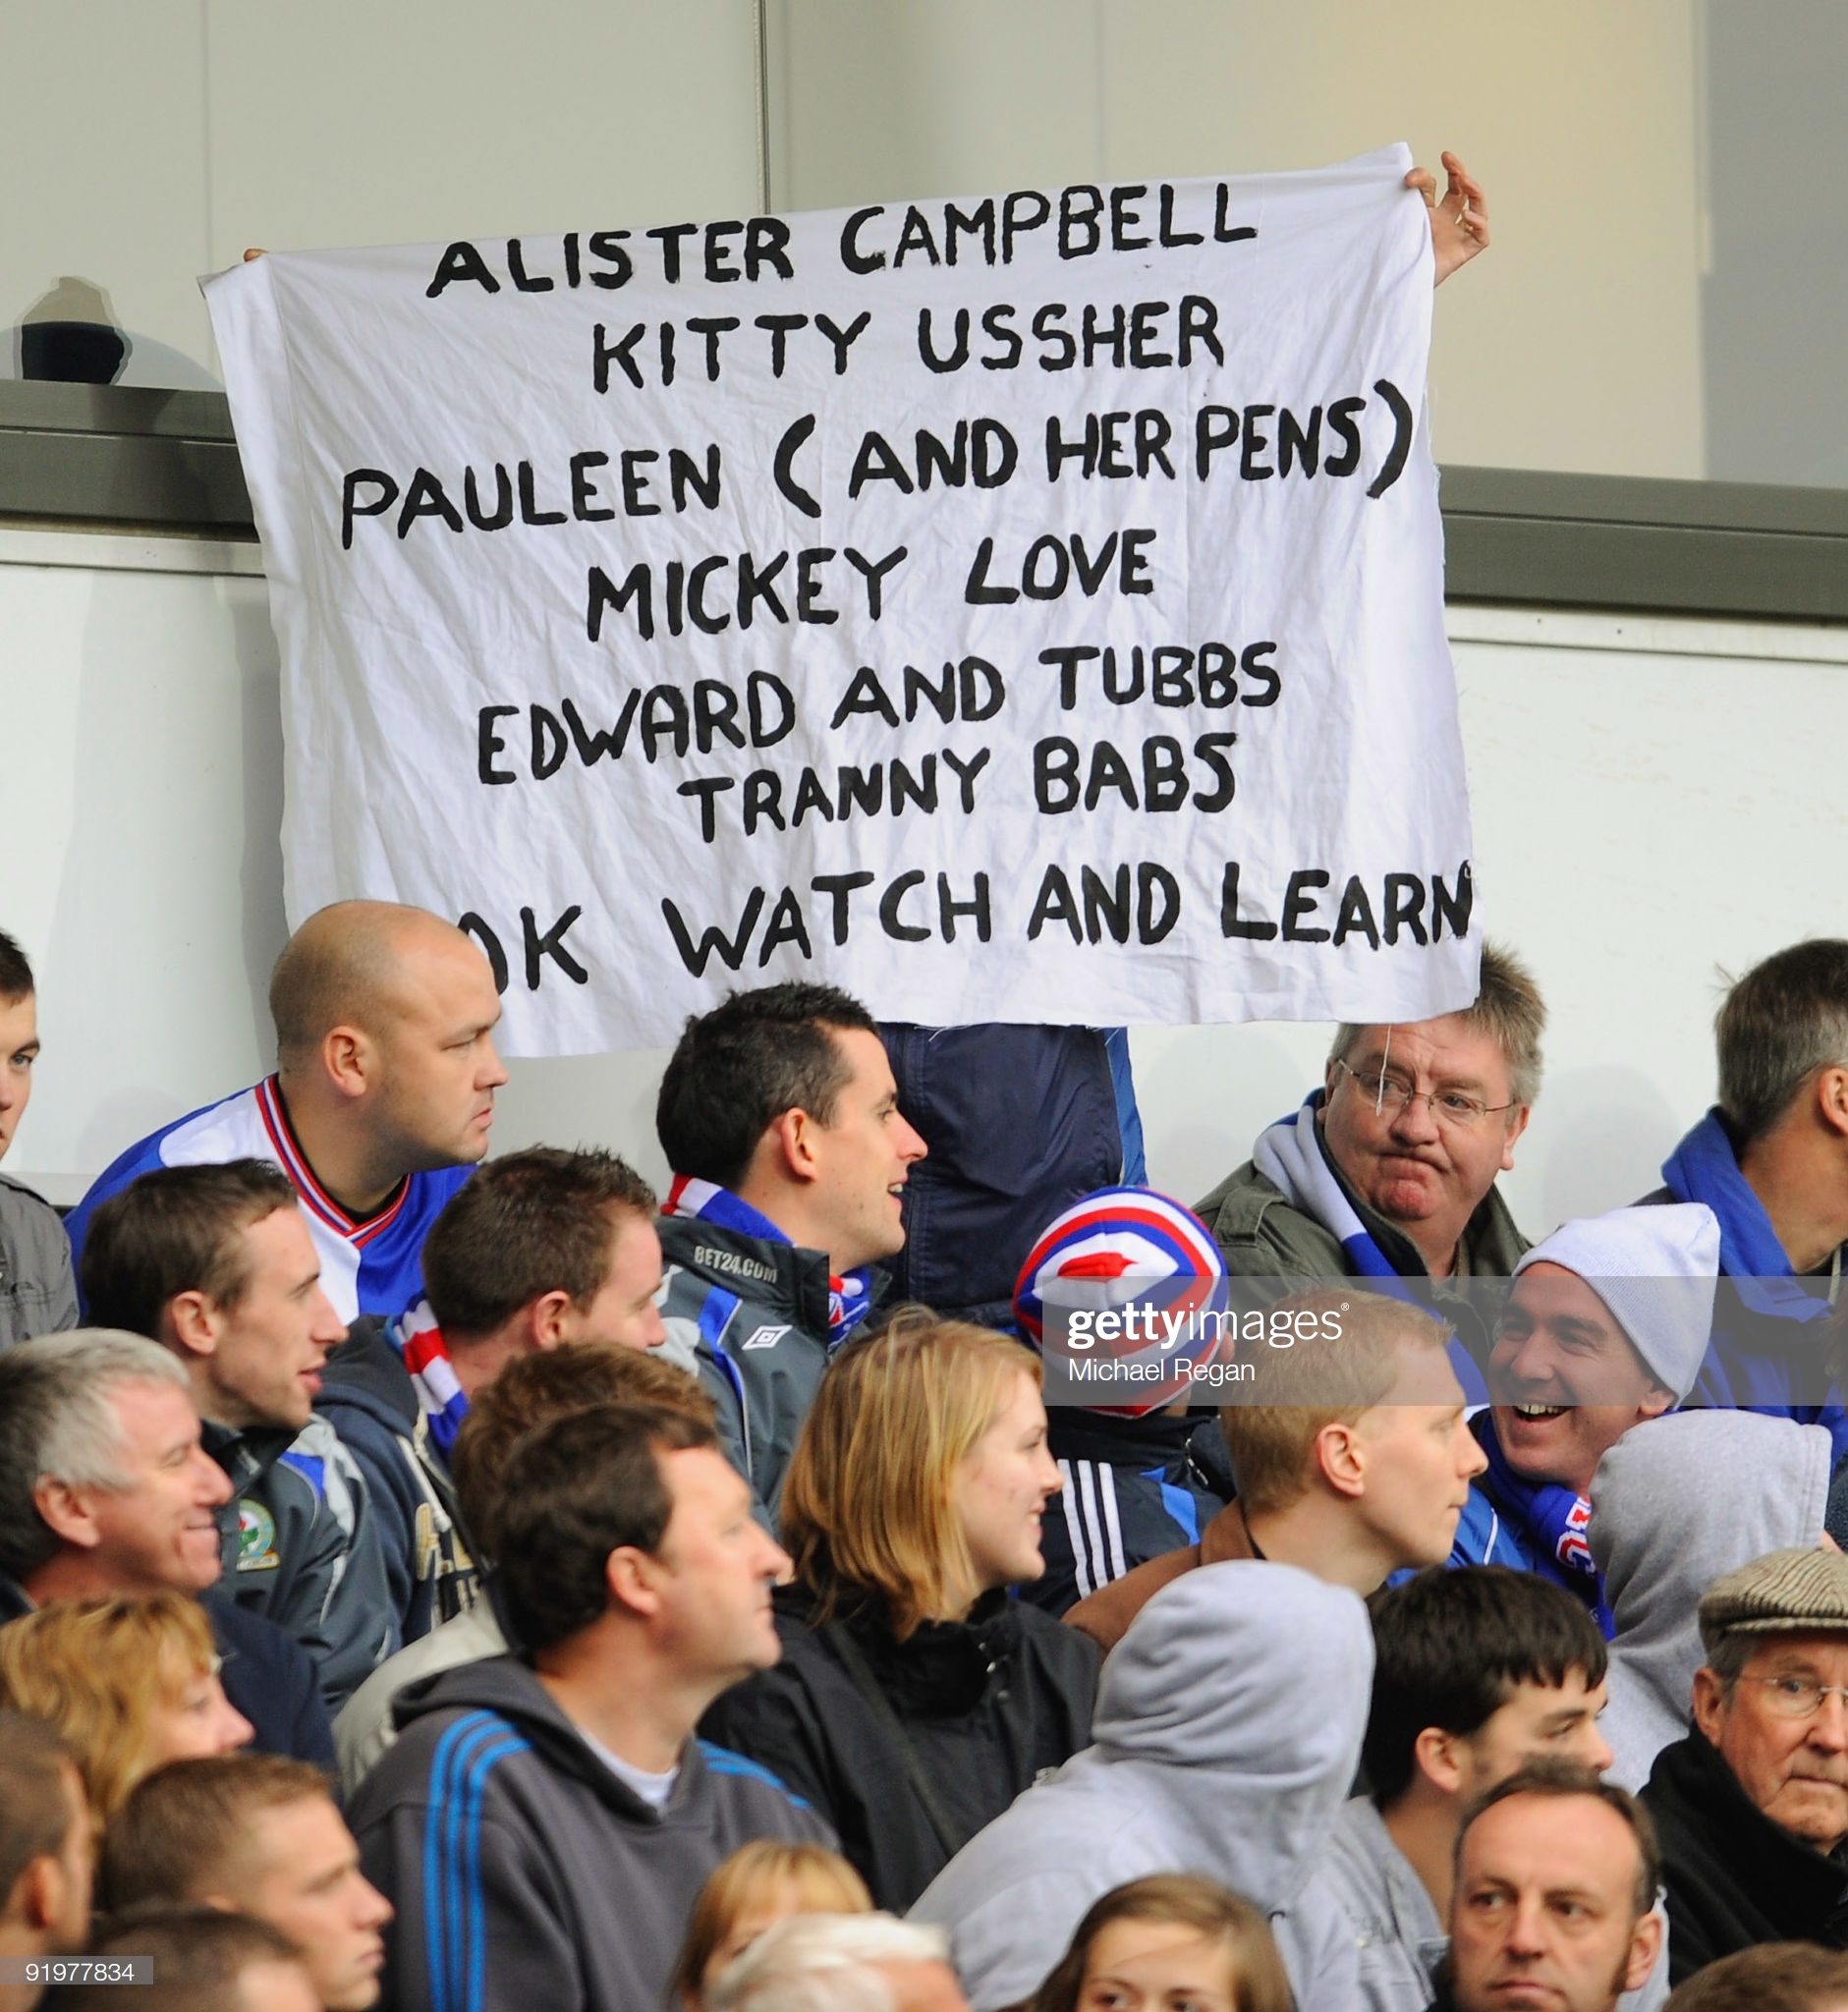 ALISTER CAMPBELL
KITTY USSHER
PAULEEN (AND HER PENS)
MICKEY LOVE
EDWARD AND TUBBS
TRANNY BABS
OK WATCH AND LEARN
BET24.COM
gettyimages®
Michael Regan
91977834